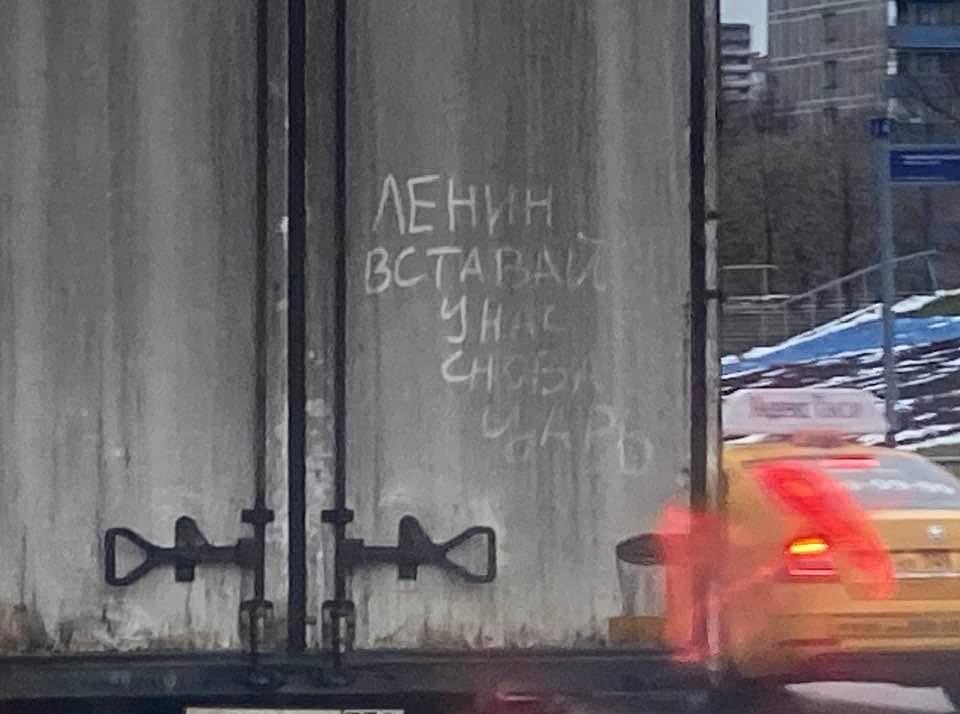 ЛЕНИН
ВСТАВАЙ
У НАС
СНОВА
ЦАРЬ
Яндекс Такси